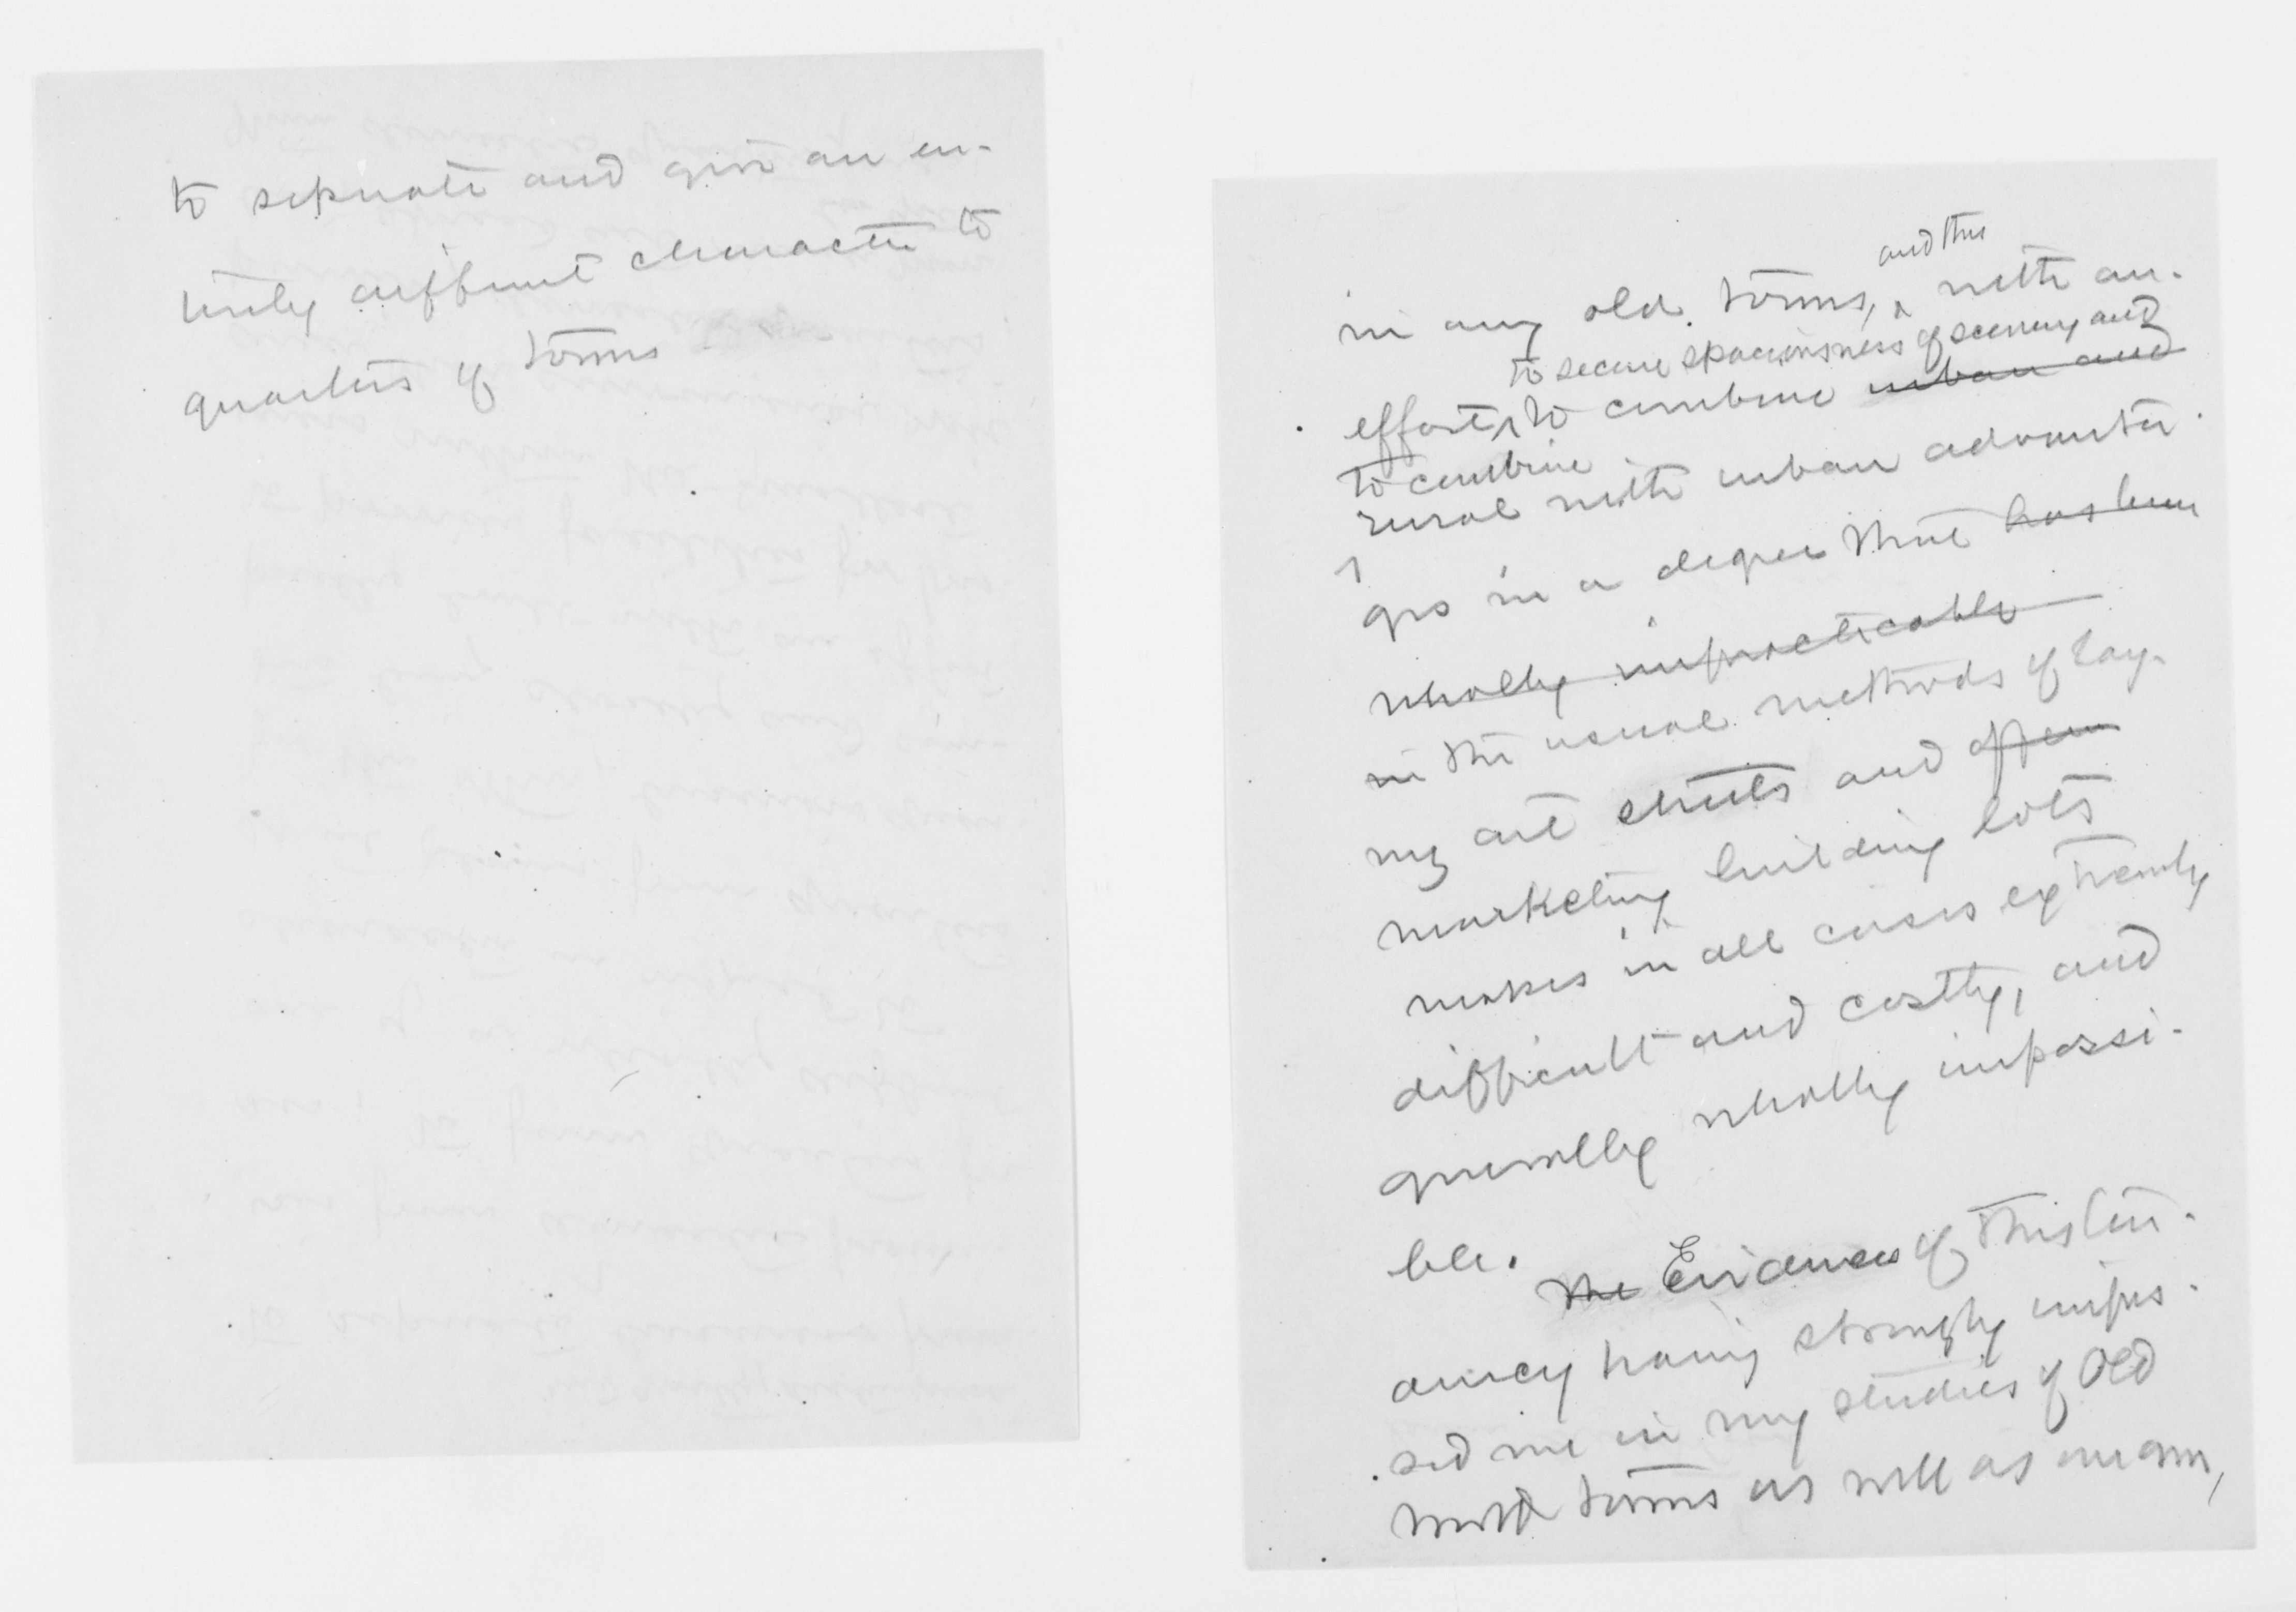 to separate and give an en-
tirely different character to
quarters of towns
and this
in any old towns, ^ with an
to secure spaciousness of scenery and
effort ^ to combine urban and
to combine
rural with urban advanta-
ges in a degree that has been
wholly impracticable
in the usual methods of lay-
ing out streets and open
marketing building lots
makes in all cases extremely
difficult and costly, and
generally wholly impossi-
ble.
The Evidences of this ten-
dency having strongly impres-
sed me in my studies of Old
World towns as well as our own,